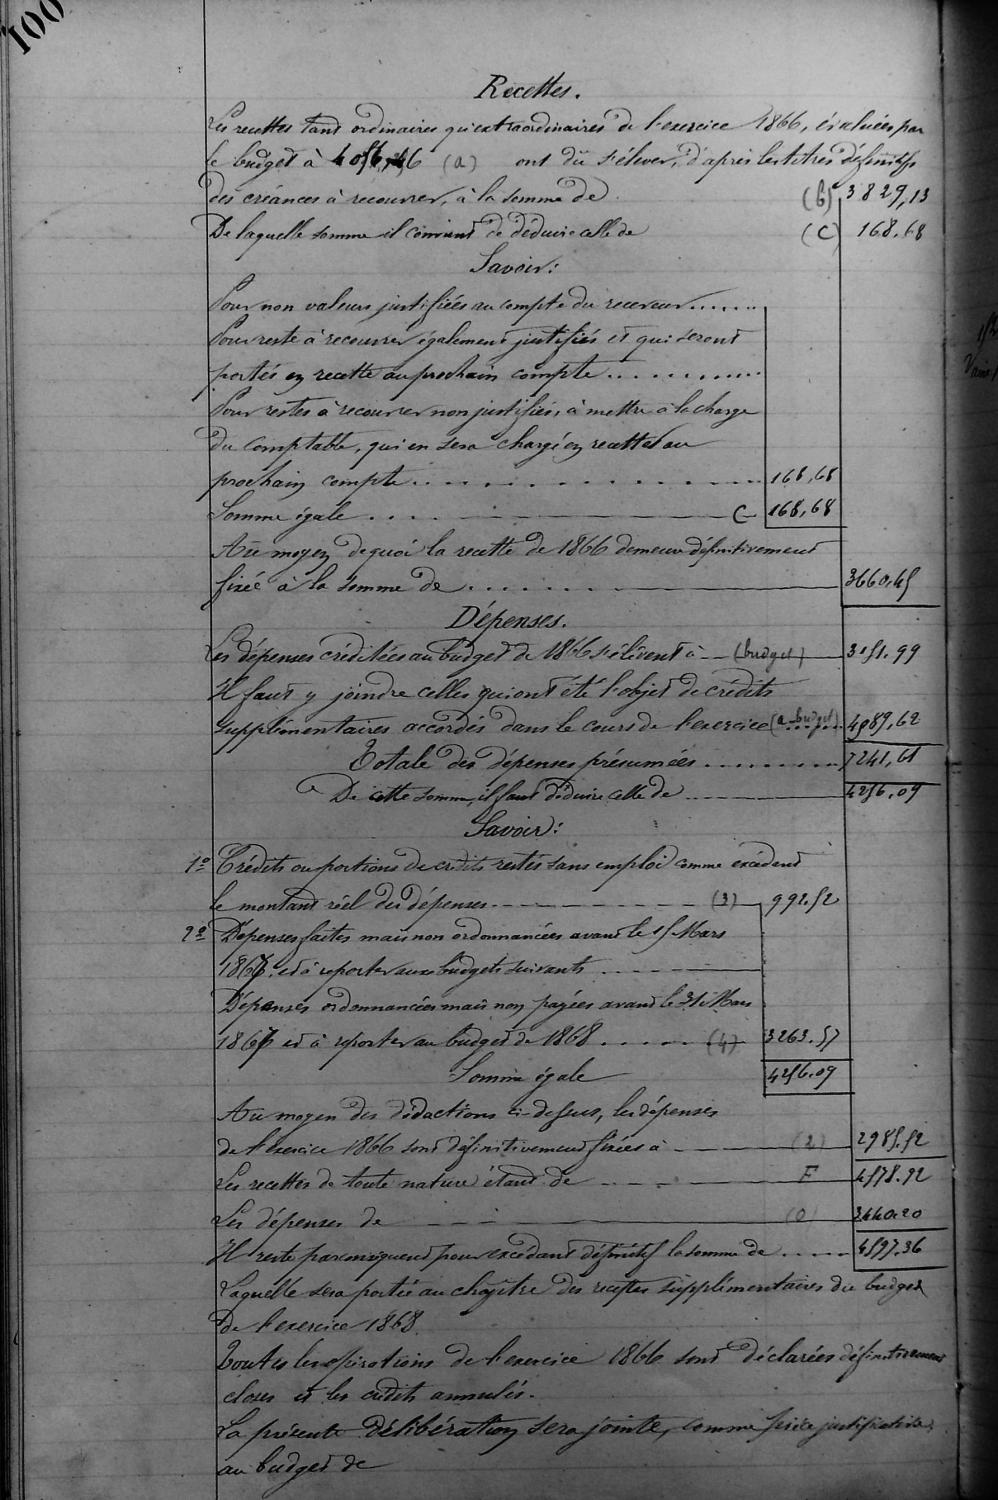 100
Recettes.
Les recettes tant ordinaires qu'extraordinaires de l'exercice 1866, évaluées par
le budget à (a) ont dû s'élever, d'après les titres définitifs
des créances à recouvrer, à la somme de (b) 3829,13
De laquelle somme il convient de déduire celle de (C) 168,68
Savoir:
Pour non valeurs justifiées au compte du receveur......
Pour reste à recouvrer également justifiés et qui seront
portés en recette au prochain compte............
Pour restes à recouvrer non justifiés, à mettre à la charge
du comptable, qui en sera chargé en recettes au
prochain compte............ 168,68
Somme égale.... C 168,68
Au moyen de quoi la recette de 1866 demeure définitivement
fixée à la somme de....... 3660,45
Dépenses.
Les dépenses créditées au budget de 1866 s'élèvent à (budget) 3151.99
Il faut y joindre celles qui ont été l'objet de crédits
supplémentaires accordés dans le cours de l'exercice (a budget) 4089,62
Totale des dépenses présumées......... 7241,61
De cette somme, il faut déduire celle de 4256.09
Savoir:
1º Crédits ou portions de crédits restés sans emploi comme excédant
le montant réel des dépenses (3) 992.52
2º Dépenses faites mais non ordonnancées avant le 15 Mars
1867, et à reporter aux budgets suivants
Dépenses ordonnancées mais non payées avant le 31 Mars
1867 et à reporter au budget de 1868..... (4) 3263.57
Somme égale 4256.09
Au moyen des déductions ci-dessus, les dépenses
de l'exercice 1866 sont définitivement fixées à (2) 2985.52
Les recettes de toute nature étant de F 4578.92
Les dépenses de
Il reste par conséquent pour excédant définitif la somme de..... 4597.36
Laquelle sera portée au chapitre des recettes supplémentaires du budget
de l'exercice 1868.
Toutes les opérations de l'exercice 1866 sont déclarées définitivement
closes et les crédits annulés.
La présente délibération sera jointe, comme pièce justificative,
au budget de